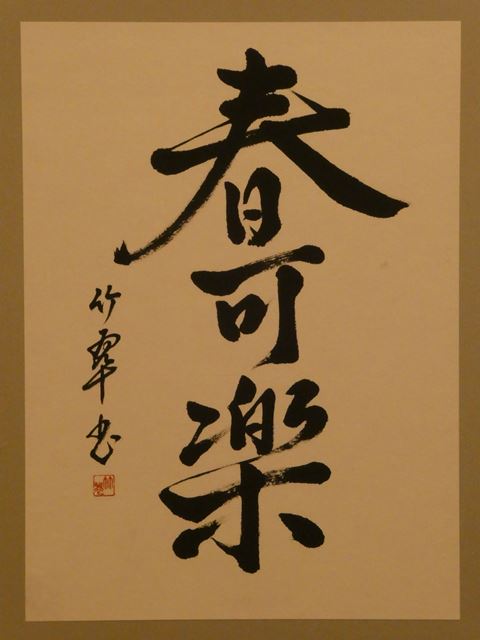 春可楽
竹翠書